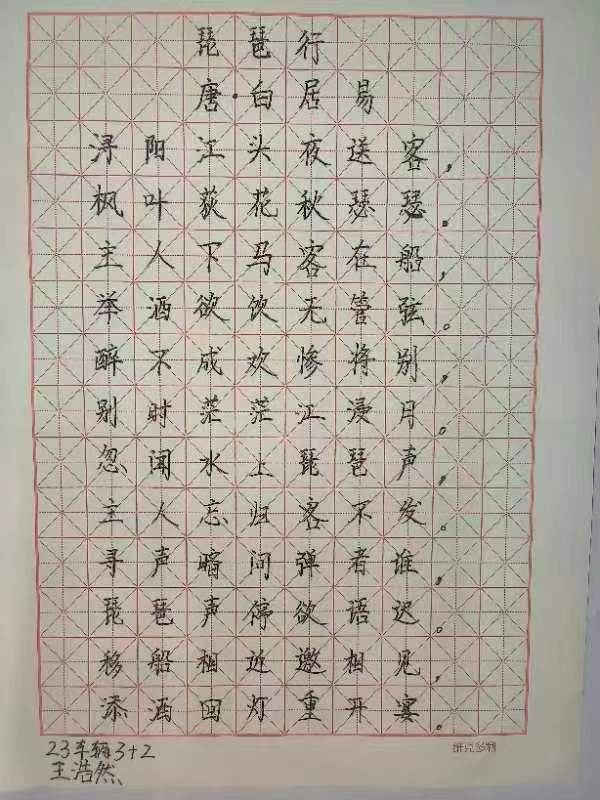 琵琶行
唐·白居易
浔阳江头夜送客,
枫叶荻花秋瑟瑟。
主人下马客在船,
举酒欲饮无管弦。
醉不成欢惨将别,
别时茫茫江浸月。
忽闻水上琵琶声,
主人忘归客不发。
寻声暗问弹者谁,
琵琶声停欲语迟。
移船相近邀相见,
添酒回灯重开宴。
23车辆3+2
王浩然